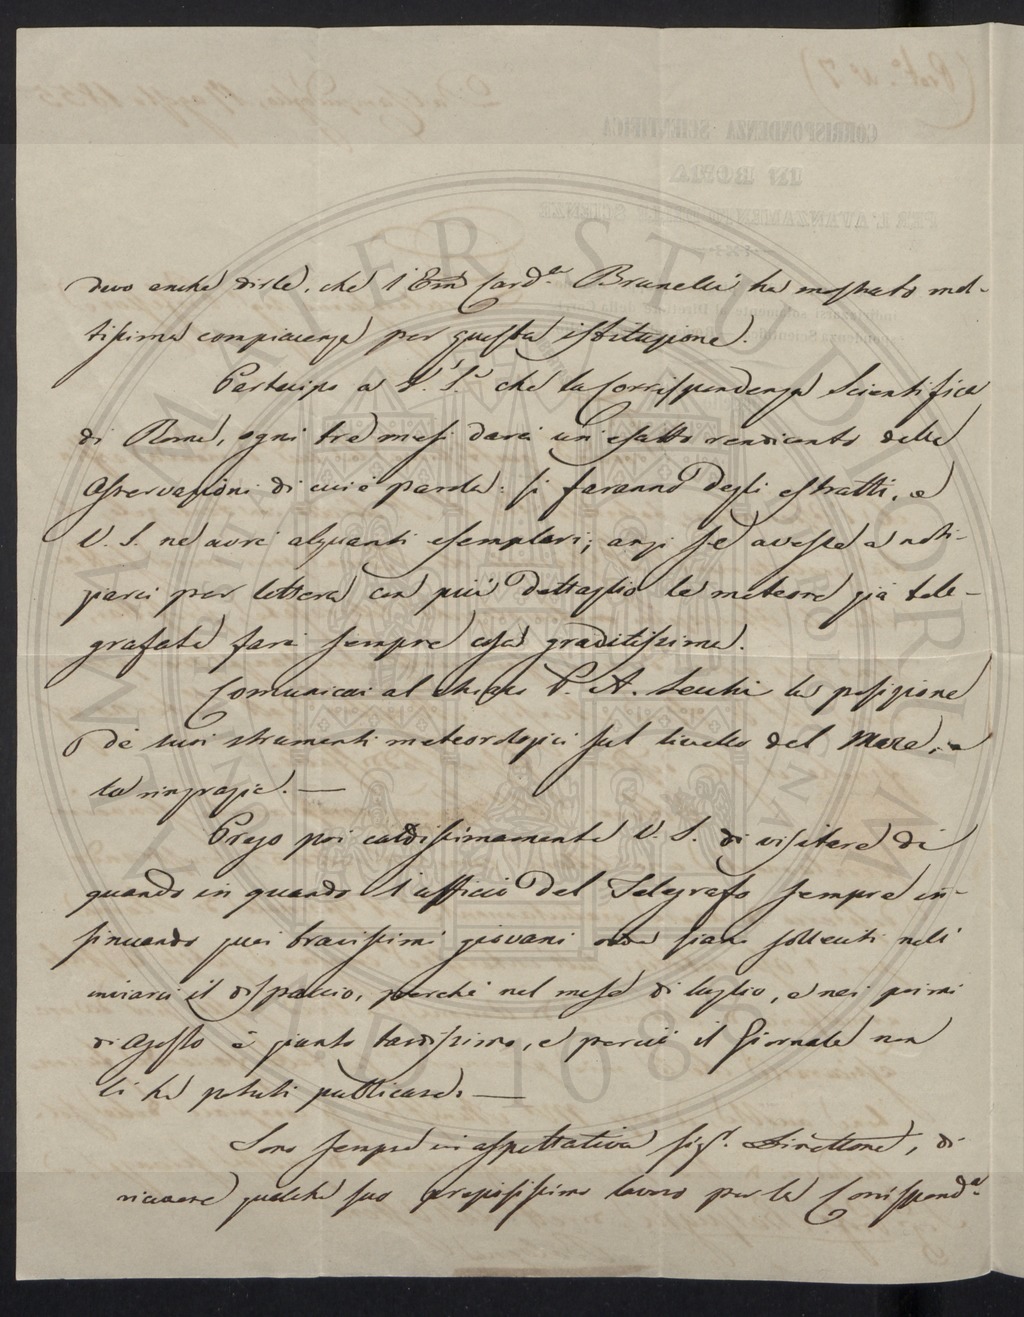 devo anche dirle, che l'Em Card.le Brunelli ha mostrato mol-
tissima compiacenza per questa istituzione.
Partecipo a V. S. che la Corrispondenza Scientifica
di Roma, ogni tre mesi darà un'esatto rendiconto delle
Osservazioni di cui è parola: si faranno degli estratti, e
V. S. ne avrà alquanti esemplari; anzi se avesse a noti-
ziarci per lettera con più dettaglio le meteore già tele-
grafate farà sempre cosa graditissima.
Comunicai al chiaro P. A. Secchi la posizione
de' suoi strumenti meteorologici sul livello del Mare, e
la ringrazia. —
Prego poi caldissimamente V. S. di visitare di
quando in quando l'ufficio del Telegrafo sempre in-
sinuando quei bravissimi giovani siano solleciti nell'
inviarci il dispaccio, perchè nel mese di luglio, e nei primi
di Agosto è giunto tardissimo, e perciò il Giornale non
li ha potuti pubblicare. —
Sono sempre in aspettativa Sig.r Direttore, di
ricevere qualche suo pregiatissimo lavoro per la Corrispond.a
ALMA MATER STUDIORUM
A.D. 1088
CORRISPONDENZA SCIENTIFICA
IN ROMA
PER L'AVANZAMENTO DELLE SCIENZE